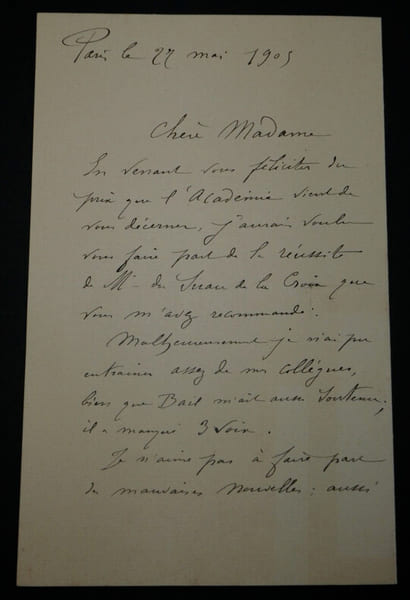 Paris le 27 mai 1905
Chère Madame
En venant vous féliciter du
prix que l'Académie vient de
vous décerner, j'aurais voulu
vous faire part de la réussite
de Mr du Suau de la Croix que
vous m'avez recommandé.
Malheureusement je n'ai pu
entrainer assez de mes collègues,
bien que Bail m'ait aussi soutenu;
il a manqué 3 voix.
Je n'aime pas à faire part
de mauvaises nouvelles; aussi